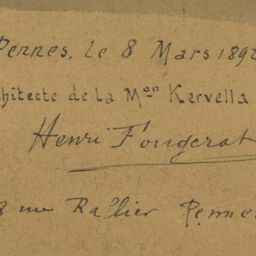 Rennes, le 8 Mars 189
chitecte de la Mon Kervella
Henri Fougerat
8 rue Rallier Rennes